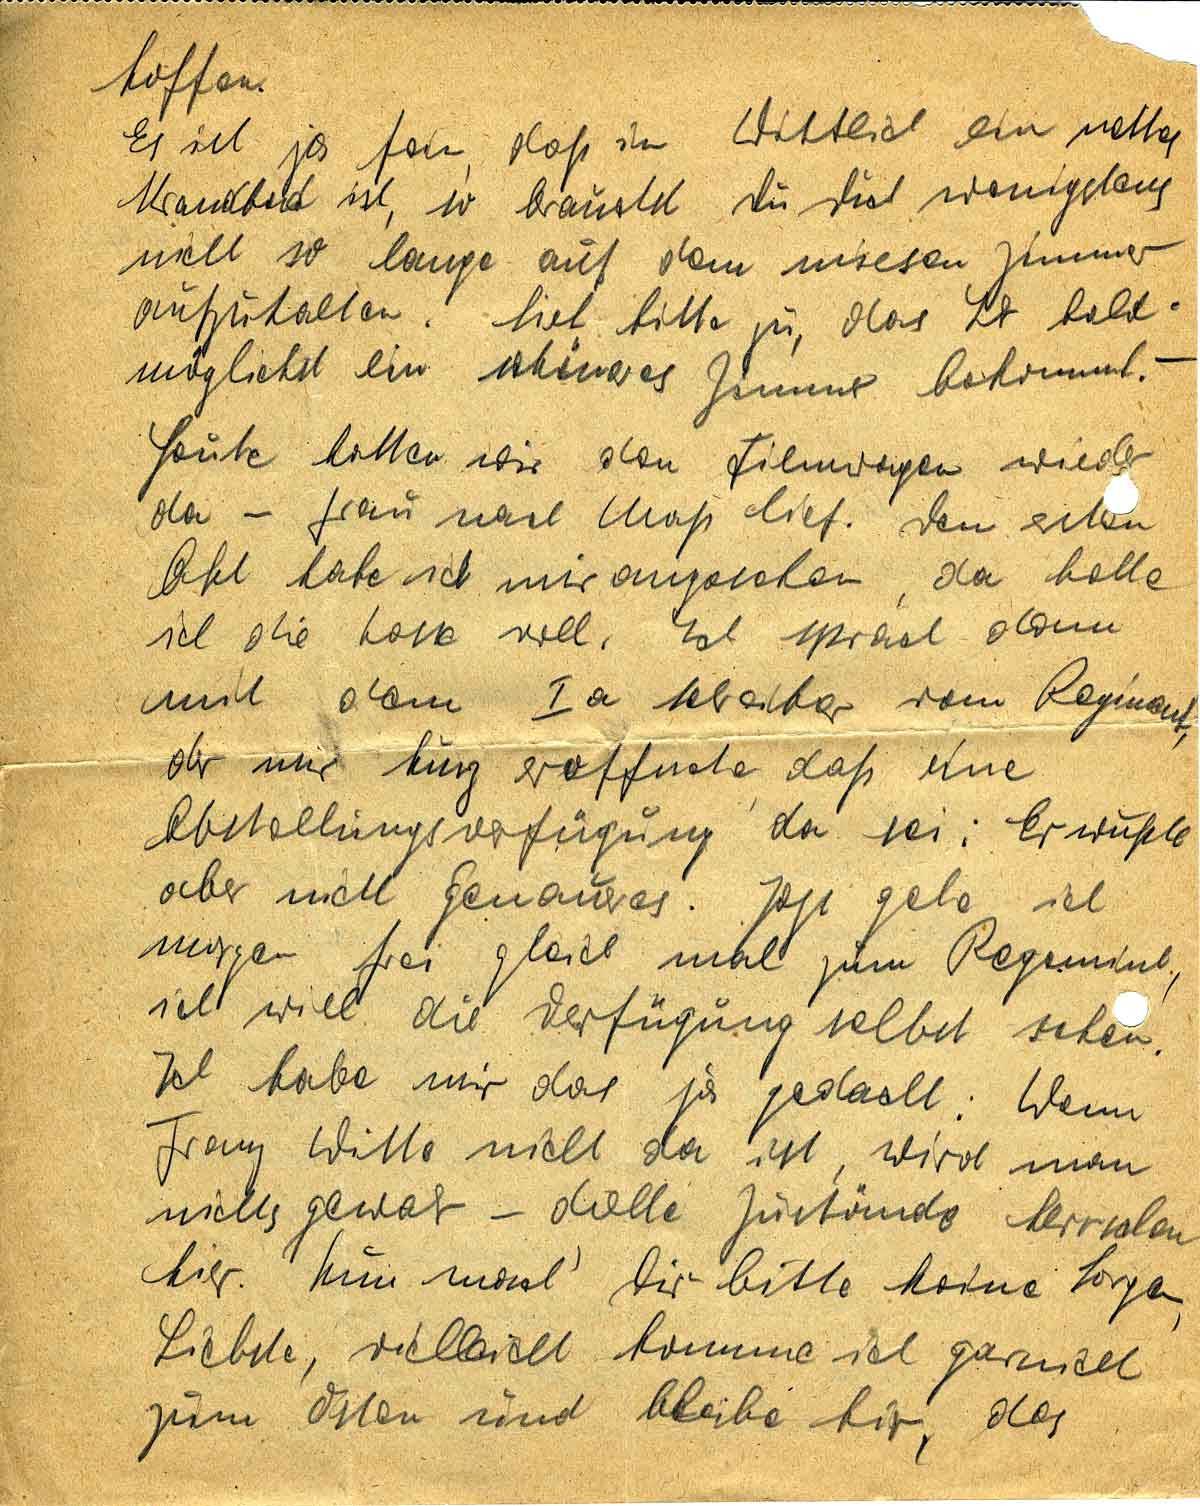 hoffen.
Es ist ja fein, daß in Wittlich ein nettes
Strandbad ist, so brauchst Du Dich wenigstens
nicht so lange auf dem miesen Zimmer
aufzuhalten. Sieh bitte zu, das Du bald-
möglichst ein schöneres Zimmer bekommst. –
Heute hatten wir den Filmwagen wieder
da – Frau nach Maß lief. Den ersten
Akt habe ich mir angesehen, da hatte
ich die Nase voll. Ich sprach dann
mit dem Ia Schreiber vom Regiment,
der mir kurz eröffnete, daß eine
Abstellungsverfügung da sei; Er wußte
aber nicht Genaueres. Jetzt gehe ich
morgen früh gleich mal zum Regemint,
ich will die Verfügung selbst sehen.
Ich habe mir das ja gedacht: Wenn
Franz Witte nicht da ist, wird man
nichts gewahr – dolle Zustände herrschen
hier. Nun mach' Dir bitte keine Sorgen,
Liebste, vielleicht komme ich garnicht
zum Osten und bleibe hier, das